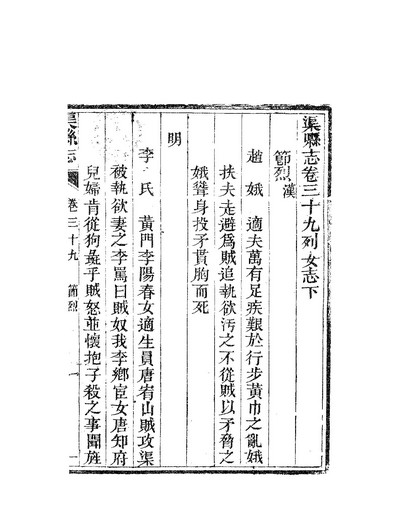 渠縣志卷三十九列女志下
節烈
漢
趙娥 適夫萬有足疾艱於行步黃巾之亂娥
扶夫走避爲賊追執欲汚之不從賊以矛脅之
娥聳身投矛貫胸而死
明
李氏 黃門李陽春女適生員唐宥山賊攻渠
被執欲妻之李罵曰賊奴我李鄉宦女唐知府
兒婦肯從狗彘乎賊怒並懷抱子殺之事聞旌
渠縣志 卷三十九 節烈 一